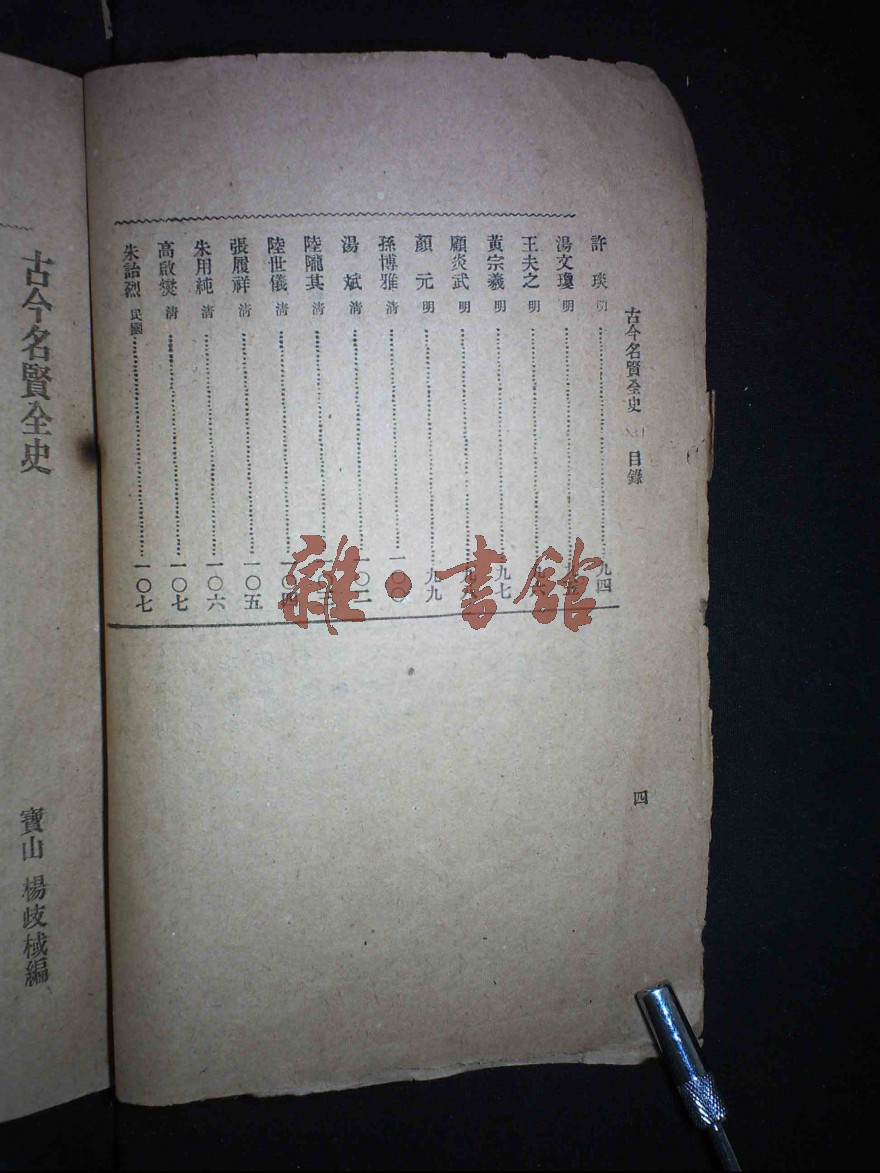 古今名賢全史 目錄
四
許琰 明 九四
湯文瓊 明 九五
王夫之 明 九六
黃宗羲 明 九七
顧炎武 明 九八
顏元 明 九九
孫博雅 清 一〇〇
湯斌 清 一〇二
陸隴其 清 一〇三
陸世儀 清 一〇四
張履祥 清 一〇五
朱用純 清 一〇六
高啟燮 清 一〇七
朱詒烈 民國 一〇七
古今名賢全史
寶山 楊歧棫編
雜·書館